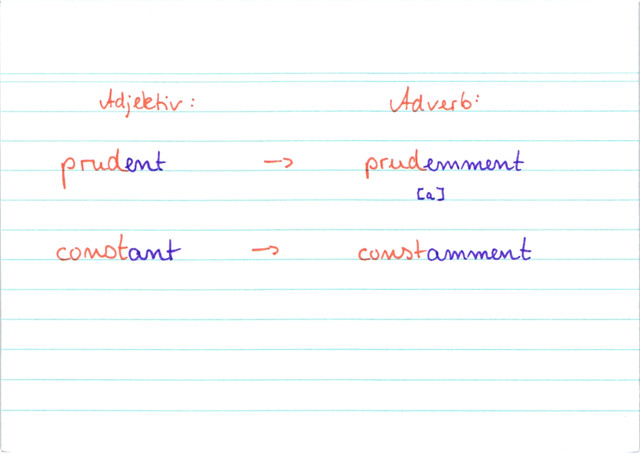 Adjektiv: Adverb:
prudent → prudemment
[a]
constant → constamment